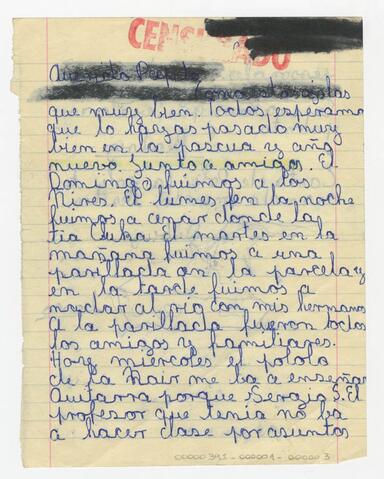 CENSURADO
que muy bien. Todos esperamos
que lo hayas pasado muy
bien en la pascua y año
nuevo. Junto a amigos. El
Domingo fuimos a los
Nires. El lunes en la noche
fuimos a cenar donde la
tia Cuka. El martes en la
mañana fuimos a una
parillada en la parcela y
en la tarde fuimos a
nadar al río con mis hermanos
a la parillada fueron todos
los amigos y familiares.
Hoy miercoles el pololo
de la Nair me ba a enseñar
Guitarra porque Sergio S. El
profesor que tenia no ba
a hacer clase por asuntos
00000391 - 000001 - 00000 3